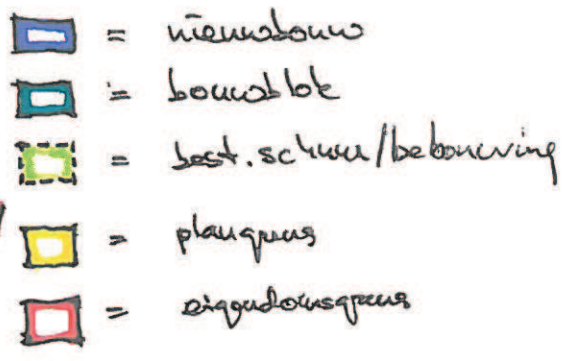 = nieuwbouw
= bouwblok
= best. schuur/bebouwing
= plangrens
= eigendomsgrens